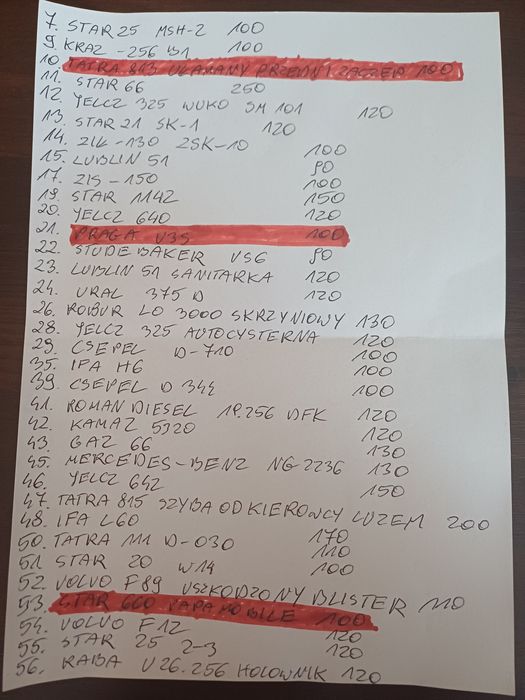 7. STAR 25 MSH-2 100
9. KRAZ -256 B1 100
10. TATRA 813 UŁAMANY PRZEDNI ZACZEP 100
11. STAR 66 250
12. YELCZ 325 WUKO SM 101 120
13. STAR 21 SK-1 120
14. ZIŁ-130 ZSK-10 100
15. LUBLIN 51 90
17. ZIS-150 100
19. STAR 1142 150
20. YELCZ 640 120
21. PRAGA V3S 100
22. STUDEBAKER US6 90
23. LUBLIN 51 SANITARKA 120
24. URAL 375 D 120
26. ROBUR LO 3000 SKRZYNIOWY 130
28. YELCZ 325 AUTOCYSTERNA 120
29. CSEPEL D-710 100
35. IFA H6 100
39. CSEPEL D 344 100
41. ROMAN DIESEL 19.256 DFK 120
42. KAMAZ 5320 120
43. GAZ 66 130
45. MERCEDES-BENZ NG 2236 130
46. YELCZ 642 150
47. TATRA 815 SZYBA OD KIEROWCY LUZEM 200
48. IFA L60 170
50. TATRA 111 D-030 110
51. STAR 20 W14 100
52. VOLVO F89 USZKODZONY BLISTER 110
53. STAR 660 PAPAMOBILE 100
54. VOLVO F12 120
55. STAR 25 2-3 120
56. RABA U26.256 HOLOWNIK 120